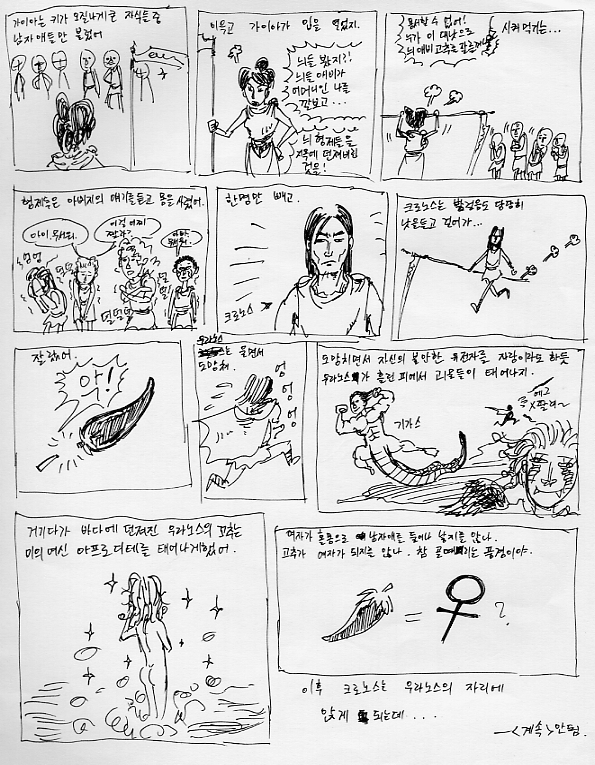 가이아는 키가 오질나게 큰 자식들 중
남자 애들만 불렀어
이윽고 가이아가 입을 열었지.
늬들 봤지?!
늬들 애비가
어머니인 나를
깔보고...
늬 형제들을
지옥에 던져버린
것을!
용서할 수 없어!
누가 이 대낫으로
늬 애비 고추를
시켜 먹기는...
형제들은 어머지의 얘기를 듣고 몸을 사렸어.
아이 무서워.
이걸 어찌
한명만 빼고.
크로노스
크로노스는 발걸음도 당당히
낫을 들고 걸어가...
잘렸어.
악!
우라노스
는 울면서
도망쳐.
엉
엉
엉
엉
도망치면서 자신의 불만한 유전자를 자랑이라도 하듯
우라노스가 흘린 피에서 괴물들이 태어나지.
기가스
거기다가 바다에 던져진 우라노스의 고추는
미의 여신 아프로디테를 태어나게했어.
여자가 혼몸으로 남자애를 들이나 낳지를 않나.
고추가 여자가 되지를 않나. 참 골때리는 풍경이야.
= ♀ ?
이후 크로노스는 우라노스의 자리에
앉게 되는데...
<계속> 안됨.